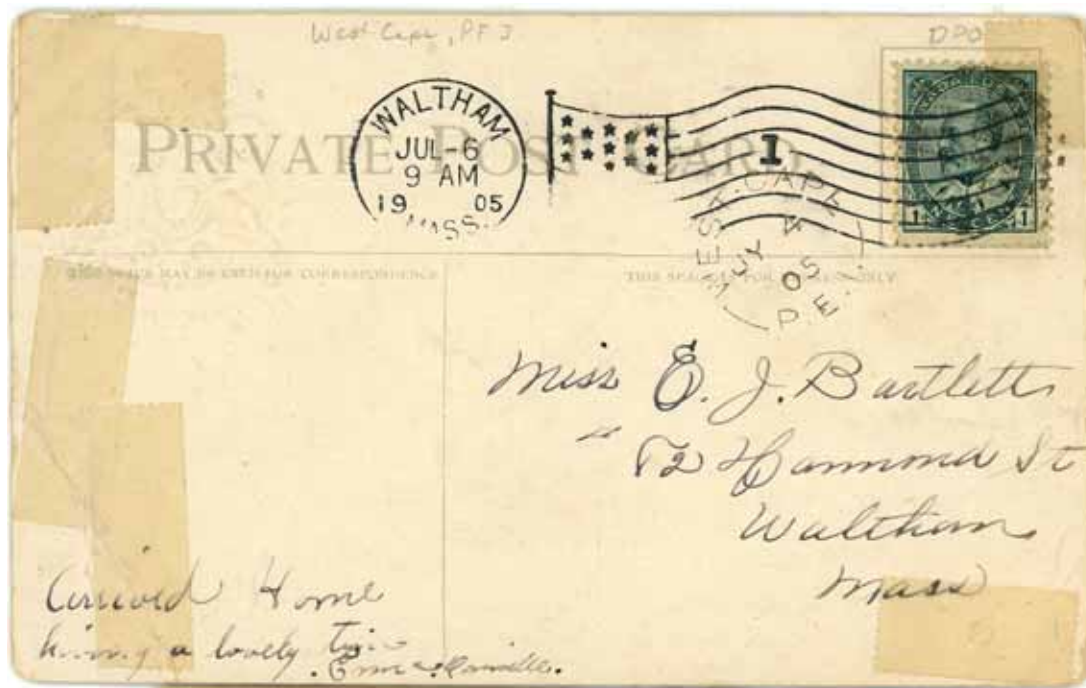 West Cape, PEI
DPO
WALTHAM
JUL-6
9 AM
19 05
MASS.
1
PRIVATE POST CARD
WEST CAPE
JY 4
05
P.E.I.
1 1
THIS SPACE MAY BE USED FOR CORRESPONDENCE
THIS SPACE FOR ADDRESS ONLY
Miss E. J. Bartlett
82 Hammond St
Waltham
Mass
Arrived Home
having a lovely time